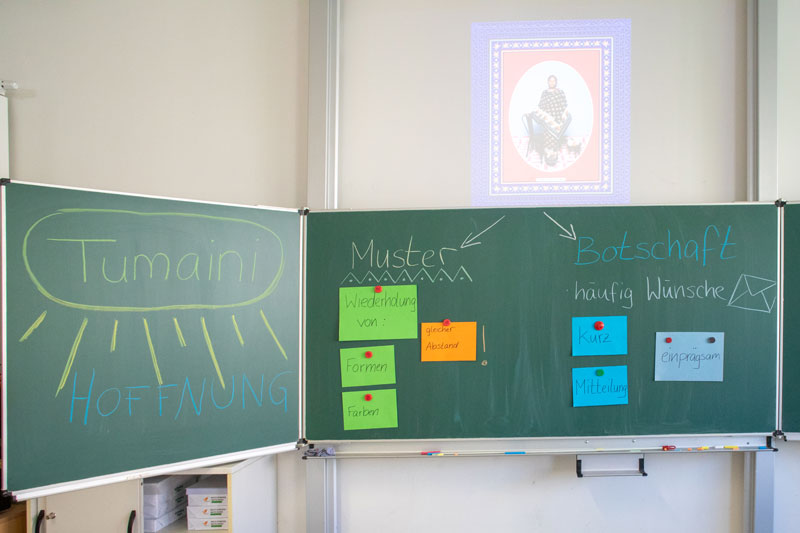 Tumaini
HOFFNUNG
Muster
Wiederholung
von:
Formen
Farben
gleicher
Abstand
!
Botschaft
häufig Wünsche
Kurz
Mitteilung
einprägsam